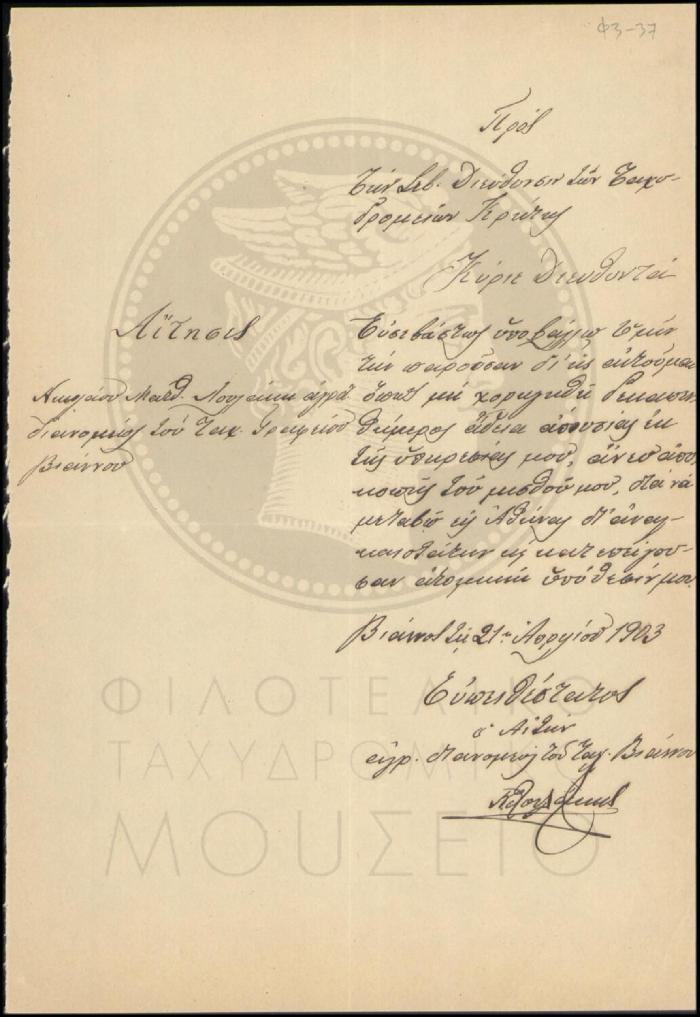 Φ3-37
Πρὸς
τὴν Σεβ. Διεύθυνσιν τῶν Ταχυ-
δρομείων Κρήτης
Κύριε Διευθυντά
Αἴτησις
Ματθ. ἀγρο
διανομέως τοῦ Ταχ. Γραφείου
Βιάννου
Εὐσεβάστως ὑποβάλλω ὑμῖν
τὴν παροῦσαν δι' ἧς αἰτοῦμαι
ὅπως μὴ χορηγηθῇ δεκαπεν
θήμερος ἄδεια ἀπουσίας ἐκ
τῆς ὑπηρεσίας μου, ἄνευ ἀπο
κοπῆς τοῦ μισθοῦ μου, διὰ νὰ
μεταβῶ εἰς Ἀθήνας δι' ἀναγ-
καιοτάτην κ κατεπείγου-
σαν ἀτομικὴν ὑπόθεσίν μου.
Βιάννος τῇ 21η Ἀπριλίου 1903
Εὐπειθέστατος
ὁ Αἰτῶν
ἀγρ. διανομεὺς τοῦ Ταχ. Βιάννου
ΦΙΛΟΤΕΛΙΚΟ
ΤΑΧΥΔΡΟΜΙΚΟ
ΜΟΥΣΕΙΟ